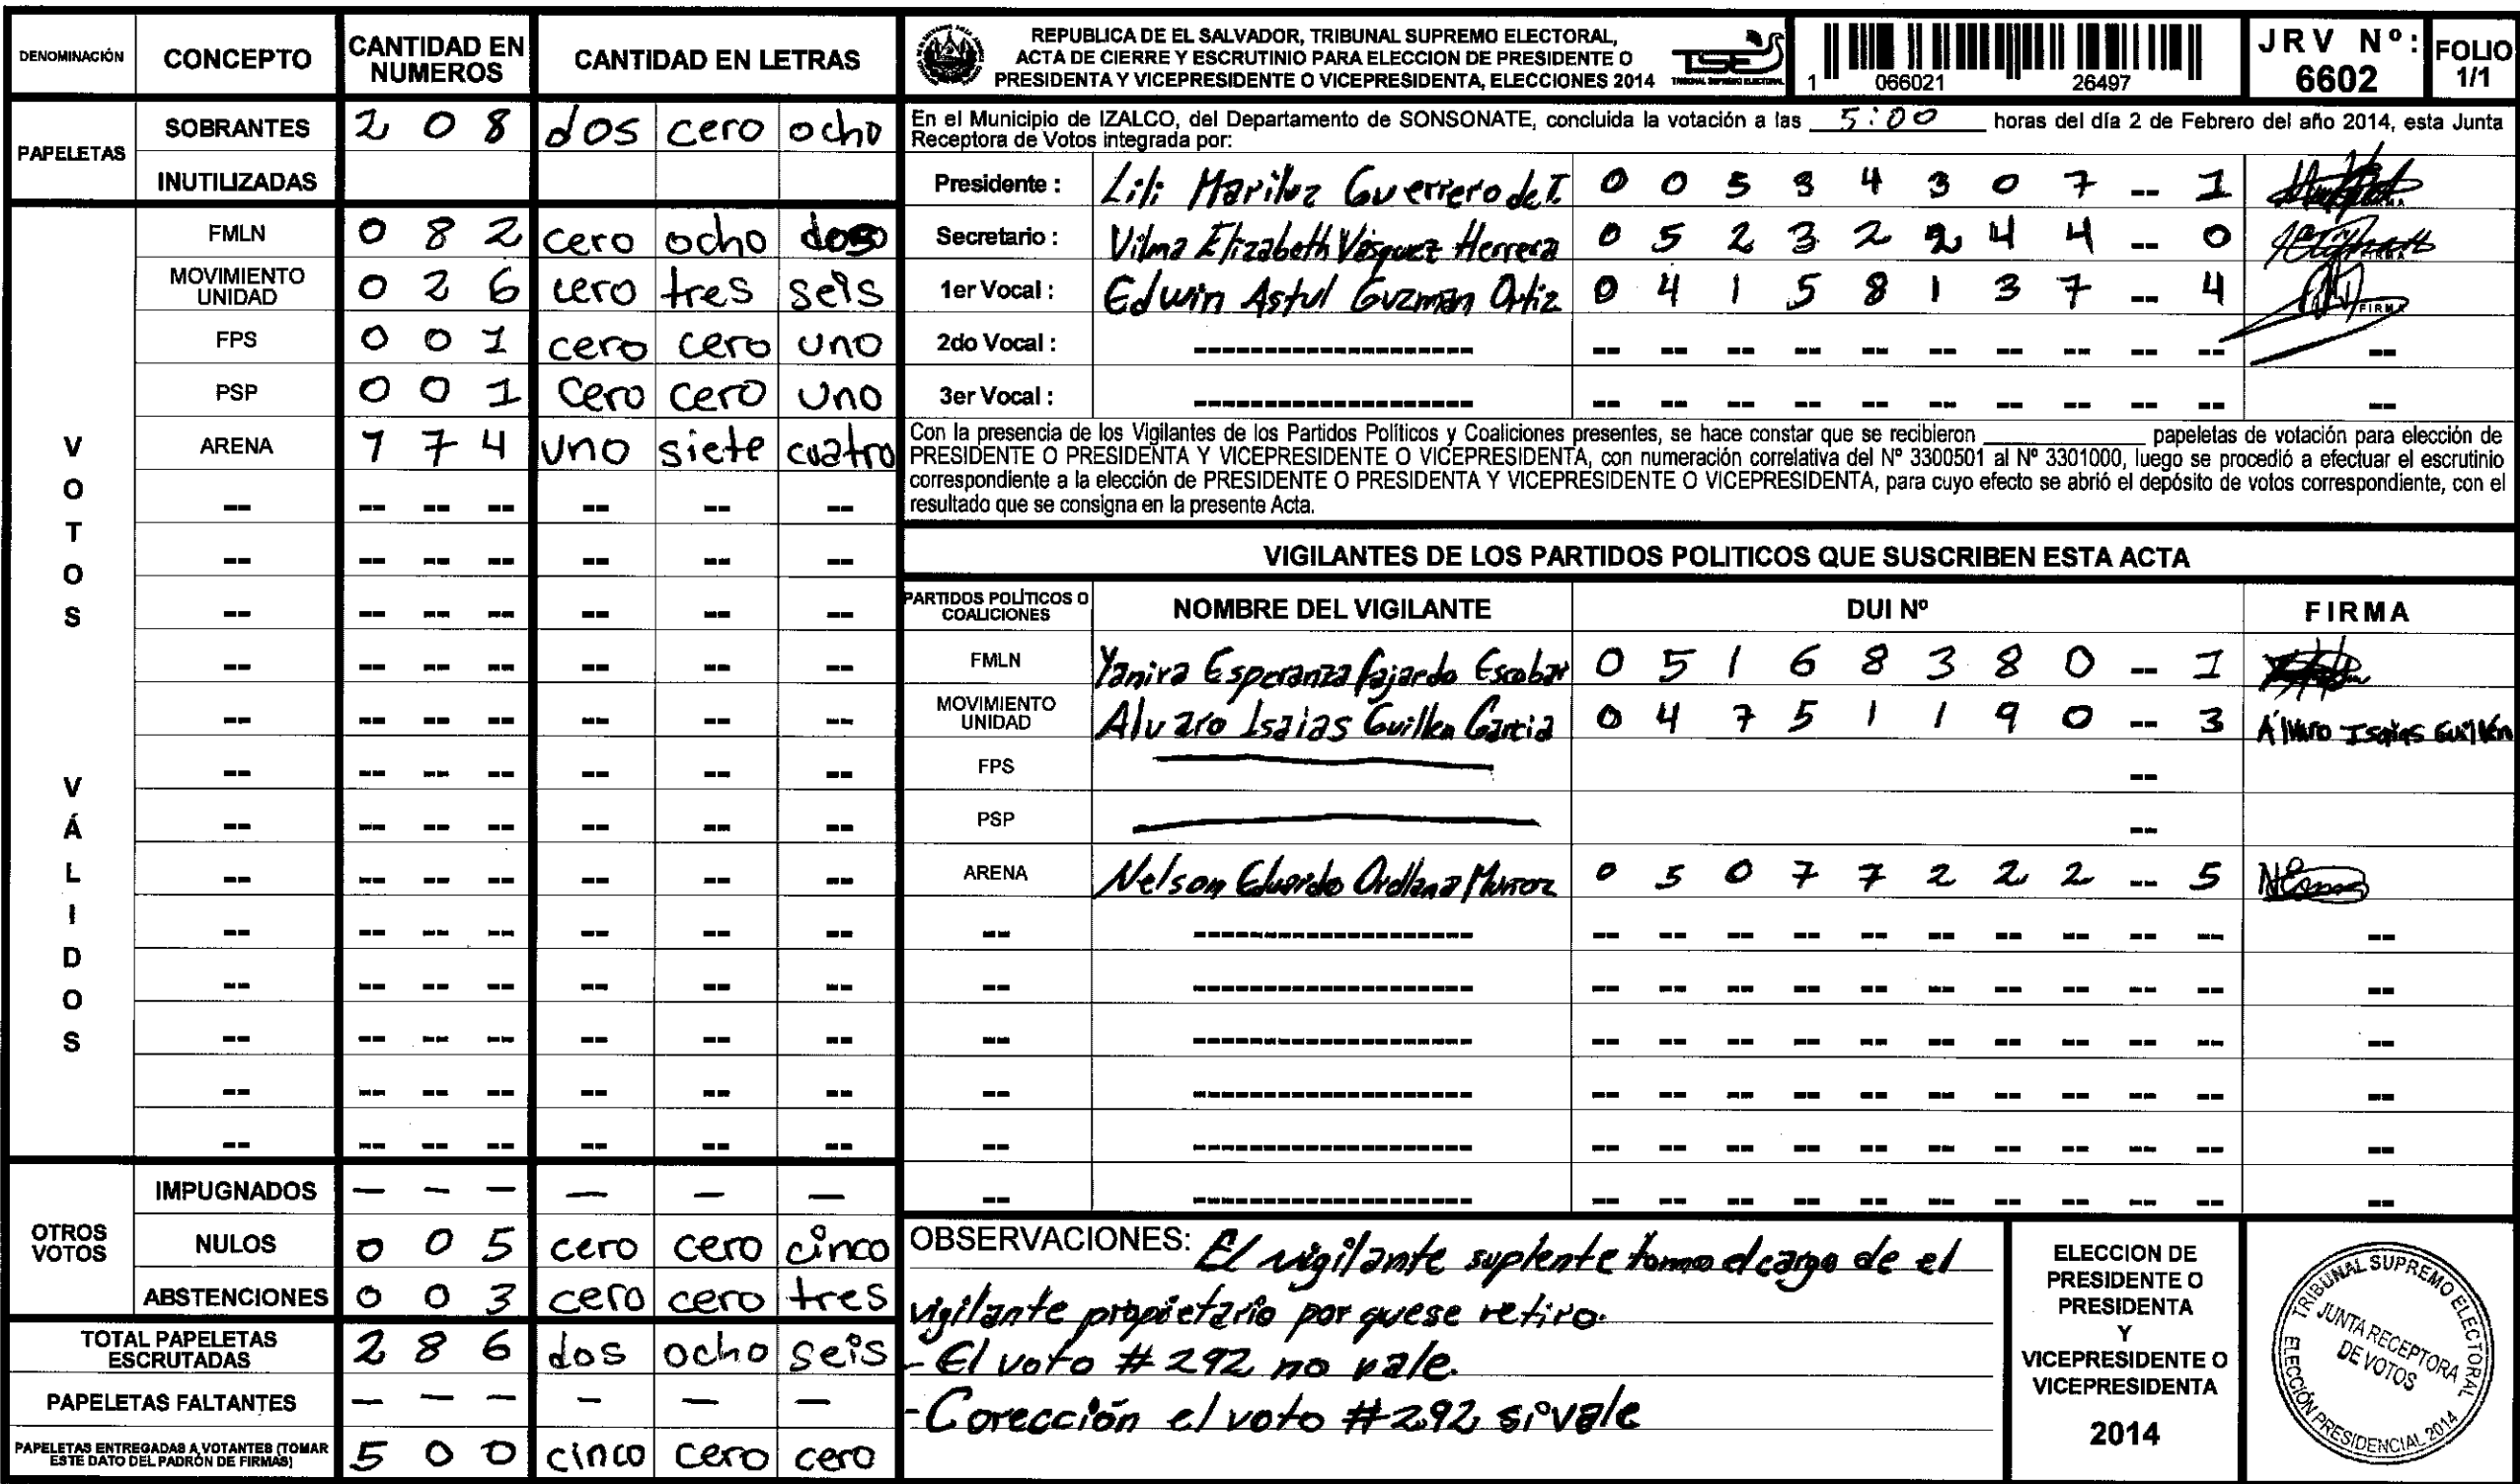 DENOMINACIÓN CONCEPTO CANTIDAD EN NUMEROS CANTIDAD EN LETRAS
PAPELETAS
SOBRANTES 2 0 8 dos cero ocho
INUTILIZADAS
VOTOS VÁLIDOS
FMLN 0 8 2 cero ocho dos
MOVIMIENTO UNIDAD 0 2 6 cero tres seis
FPS 0 0 1 cero cero uno
PSP 0 0 1 cero cero uno
ARENA 1 7 4 uno siete cuatro
OTROS VOTOS
IMPUGNADOS — — — — — —
NULOS 0 0 5 cero cero cinco
ABSTENCIONES 0 0 3 cero cero tres
TOTAL PAPELETAS ESCRUTADAS 2 8 6 dos ocho seis
PAPELETAS FALTANTES — — — — — —
PAPELETAS ENTREGADAS A VOTANTES (TOMAR ESTE DATO DEL PADRÓN DE FIRMAS) 5 0 0 cinco cero cero
REPUBLICA DE EL SALVADOR, TRIBUNAL SUPREMO ELECTORAL,
ACTA DE CIERRE Y ESCRUTINIO PARA ELECCION DE PRESIDENTE O
PRESIDENTA Y VICEPRESIDENTE O VICEPRESIDENTA, ELECCIONES 2014
TSE
TRIBUNAL SUPREMO ELECTORAL
1 066021 26497
JRV Nº: 6602
FOLIO 1/1
En el Municipio de IZALCO, del Departamento de SONSONATE, concluida la votación a las 5:00 horas del día 2 de Febrero del año 2014, esta Junta
Receptora de Votos integrada por:
Presidente : Lili Mariluz Guerrero de T. 0 0 5 3 4 3 0 7 -- 1
Secretario : Vilma Elizabeth Vásquez Herrera 0 5 2 3 2 2 4 4 -- 0
1er Vocal : Edwin Astul Guzmán Ortiz 0 4 1 5 8 1 3 7 -- 4 FIRMA
2do Vocal :
3er Vocal :
Con la presencia de los Vigilantes de los Partidos Políticos y Coaliciones presentes, se hace constar que se recibieron ________ papeletas de votación para elección de
PRESIDENTE O PRESIDENTA Y VICEPRESIDENTE O VICEPRESIDENTA, con numeración correlativa del Nº 3300501 al Nº 3301000, luego se procedió a efectuar el escrutinio
correspondiente a la elección de PRESIDENTE O PRESIDENTA Y VICEPRESIDENTE O VICEPRESIDENTA, para cuyo efecto se abrió el depósito de votos correspondiente, con el
resultado que se consigna en la presente Acta.
VIGILANTES DE LOS PARTIDOS POLITICOS QUE SUSCRIBEN ESTA ACTA
PARTIDOS POLÍTICOS O COALICIONES NOMBRE DEL VIGILANTE DUI Nº FIRMA
FMLN Yanira Esperanza Fajardo Escobar 0 5 1 6 8 3 8 0 -- 1
MOVIMIENTO UNIDAD Alvaro Isaias Guillen Garcia 0 4 7 5 1 1 9 0 -- 3 Álvaro Isaías Guillén
FPS --
PSP --
ARENA Nelson Eduardo Orellana Munoz 0 5 0 7 7 2 2 2 -- 5
OBSERVACIONES: El vigilante suplente tomo el cargo de el
vigilante propietario por quese retiro.
- El voto #292 no vale.
- Corección el voto #292 si vale
ELECCION DE
PRESIDENTE O
PRESIDENTA
Y
VICEPRESIDENTE O
VICEPRESIDENTA
2014
TRIBUNAL SUPREMO ELECTORAL
JUNTA RECEPTORA
DE VOTOS
ELECCIÓN PRESIDENCIAL 2014